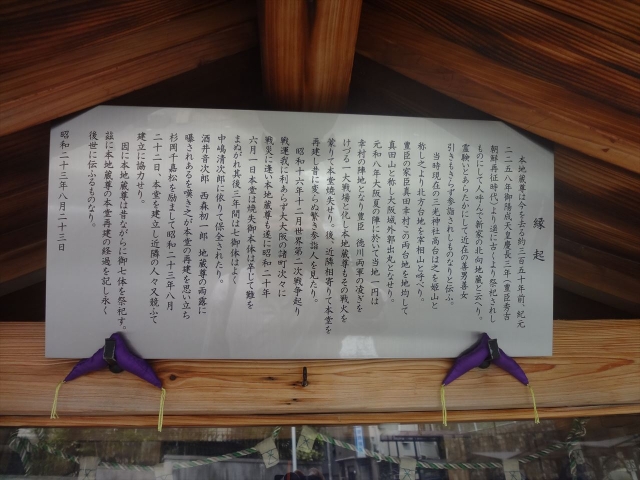 縁起
本地蔵尊は今を去る約三百五十年前、紀元
二二五八年御陽成天皇慶長三年(豊臣秀吉
朝鮮再征時代)より遥に古くより祭祀されし
ものにして人呼んで新家の北向地蔵と云へり。
霊験いとあらたかにして近在の善男善女
引きもきらず参詣されしものなりと伝ふ。
当時現在の三光神社高台は之を姫山と
称し之より北方台地を宰相山と呼べり。
豊臣の家臣真田幸村この両台地を地均して
真田山と称し大阪城外郭出丸となせり。
元和八年大阪夏の陣に於いて当地一円は
幸村の陣地となり豊臣 徳川両軍の凌ぎを
けづる一大戦場と化し本地蔵尊もその戦火を
蒙りて本堂焼失せり。後、近隣相寄りて本堂を
再建し昔に変らぬ繁き参詣人を見たり。
昭和十六年十二月世界第二次戦争起り
戦運我に利あらず大大阪の諸町次々に
戦災に逢い本地蔵尊も遂に昭和二十年
六月一日本堂は焼失御本体は幸して難を
まぬがれ其後三年間は七御体はよく
中嶋清次郎に依りて保全されたり。
酒井音次郎 西森初一郎 地蔵尊の雨露に
曝されあるを嘆き之が本堂の再建を思い立ち
杉岡千嘉松を励まして昭和二十三年八月
二十二日、本堂を建立し近隣の人々又競ふて
建立に協力せり。
因に本地蔵尊は昔ながらに御七体を祭祀す。
茲に本地蔵尊の本堂再建の経過を記し永く
後世に伝ふるものなり。
昭和二十三年八月二十三日